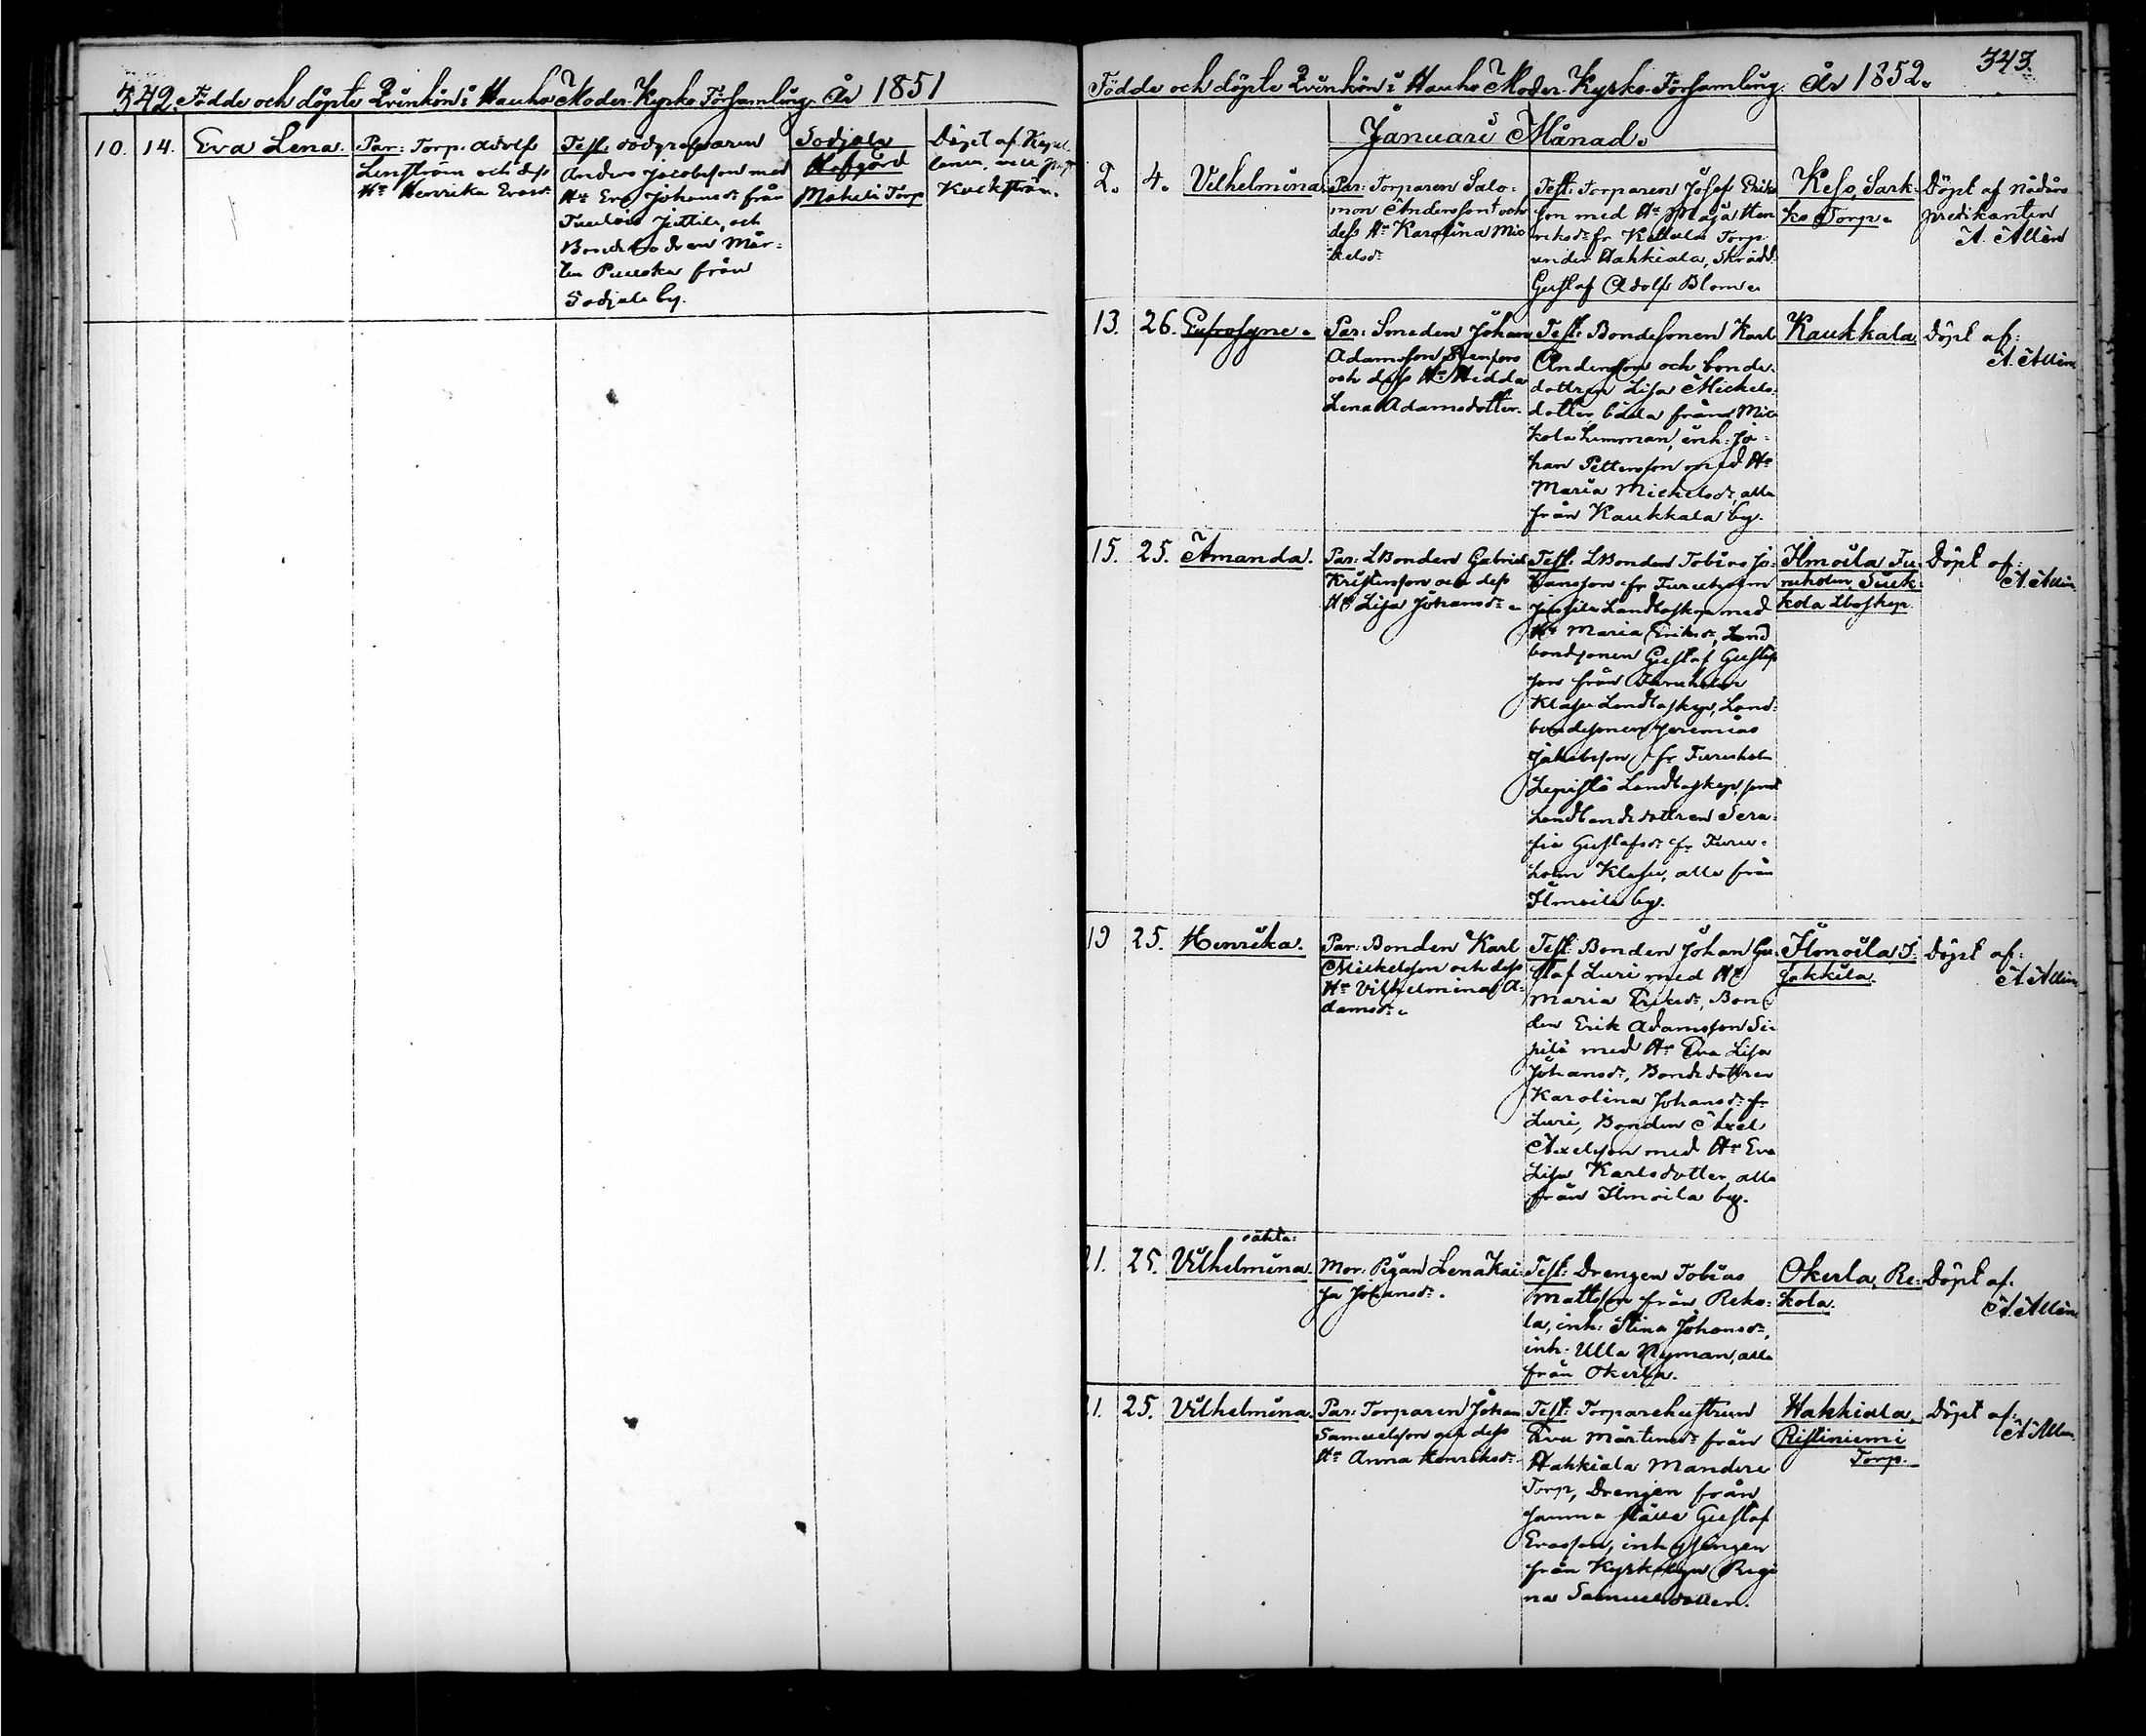 342. Födde och döpte Qvinkön i Hauho Moder-Kyrko Församling År 1851
10. 14. Eva Lena.
Par: Torp. Adolf
Lenström och dess
Hu Henrika Ersd:
Test: dödgräfvaren
Anders Jacobsson med
Hu Eva Johansd: från
Tuulois Juttila, och
Bondebodren Mår-
ten Puuska från
Sodjala by.
Sodjala
Hofgård
Mikkeli Torp
Döpt af Kapel-
lanen
Kuckström.
343
Födde och döpte Qvinkön i Hauho Moder-Kyrko-Församling År 1852.
Januari Månad.
2. 4. Vilhelmina.
Par: Torparen Salo-
mon Andersson och
dess Hu Karolina Mic-
kelsd:
Test: Torparen Josef Eriks
son med Hu Maja Hen
riksd: fr Kettula Torp
under Hahkiala, Skrädd:
Gustaf Adolf Blom.
Keso, Sark-
ko Torp.
Döpt af Nådårs
predikanten
A. Allén
13. 26. Eufrosyne.
Par: Smeden Johan
Adamsson Stenfors
och dess Hu Hedda
Lena Adamsdotter.
Test: Bondesonen Karl
Andersson och bonde-
dottren Lisa Mickels-
dotter båda från Mic
kola hemman, inh: Jo-
han Pettersson med Hu
Maria Mickelsd: alla
från Kaukkala by.
Kaukkala
Döpt af:
A. Allén
15. 25. Amanda.
Par: LBonden Gabriel
Kristersson och dess
Hu Lisa Johansd:
Test: LBonden Tobias Jo-
hansson fr Furuholm
Jussila Landboskap med
Hu Maria Eriksd:, Land
bondsonen Gustaf Gustafs
son från Furuholm
Klasu Landboskap, Land-
bondesonen Jeremias
Jakobsson fr Furuholm
Lepistö Landboskap, samt
Landbondedottren Sera-
fia Gustafsd: fr Furu-
holm Klasu, alla från
Ilmoila by.
Ilmoila Fu-
ruholm, Suuk-
kola Lboskap.
Döpt af:
A. Allén
19 25. Henrika.
Par: Bonden Karl
Mickelsson och dess
Hu Vilhelmina A-
damsd:
Test: Bonden Johan Gu-
staf Luri med Hu
Maria Eriksd:, Bon-
den Erik Adamsson Si-
pilä med Hu Eva Lisa
Johansd:, Bondedottren
Karolina Johansd: fr
Luri, Bonden Axel
Axelsson med Hu Eva
Lisa Karlsdotter, alla
från Ilmoila by.
Ilmoila, I.
Jakkila.
Döpt af:
A. Allén
oäkta:
21. 25. Vilhelmina.
Mor: Pigan Lena Kai-
sa Johansd:.
Test: Drengen Tobias
Mattsson från Reko-
la, inh: Stina Johansd:,
inh: Ulla Nyman, alla
från Okerla.
Okerla, Re-
kola.
Döpt af.
A. Allén
21. 25. Vilhelmina.
Par: Torparen Johan
Samuelsson och dess
Hu Anna Henriksd:
Test: Torparehustrun
Eva Mårtensd: från
Hahkiala Mandere
Torp, Drengen från
samma ställe Gustaf
Ersson, inhysingen
från Kyrkobyn Regi
na Samuelsdotter.
Hahkiala,
Ristiniemi
Torp.
Döpt af:
A. Allén